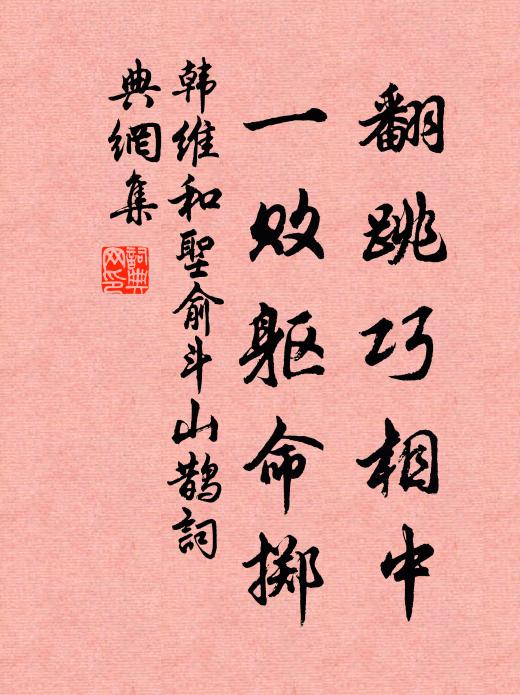 翻跳巧相中
一败躯命掷
韩维和聖俞斗山鹊詞
典網集
詞典网印